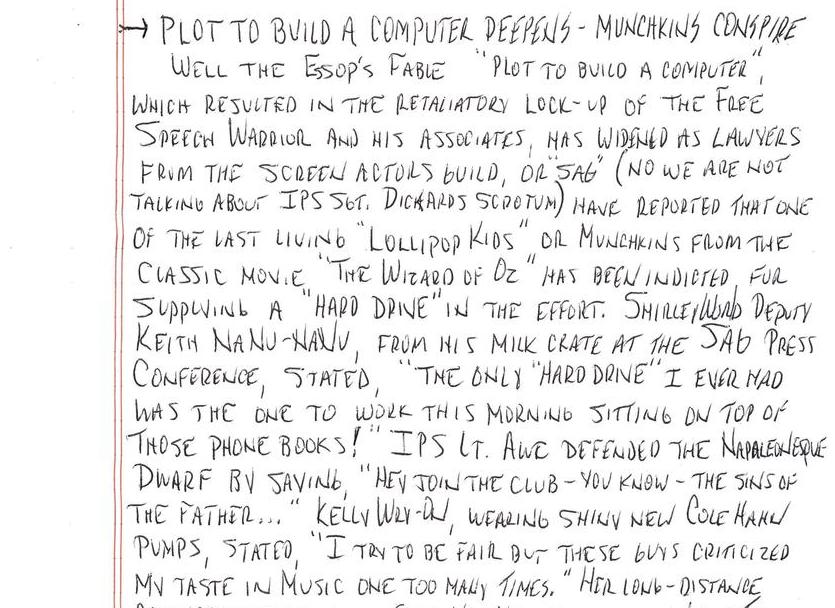 → PLOT TO BUILD A COMPUTER DEEPENS - MUNCHKINS CONSPIRE
WELL THE ESSOP'S FABLE "PLOT TO BUILD A COMPUTER",
WHICH RESULTED IN THE RETALIATORY LOCK-UP OF THE FREE
SPEECH WARRIOR AND HIS ASSOCIATES, HAS WIDENED AS LAWYERS
FROM THE SCREEN ACTORS GUILD, OR "SAG" (NO WE ARE NOT
TALKING ABOUT IPS SGT. DICKARDS SCROTUM) HAVE REPORTED THAT ONE
OF THE LAST LIVING "LOLLIPOP KIDS" OR MUNCHKINS FROM THE
CLASSIC MOVIE "THE WIZARD OF OZ" HAS BEEN INDICTED FOR
SUPPLYING A "HARD DRIVE" IN THE EFFORT. SHIRLEY WORLD DEPUTY
KEITH NANU-NANU, FROM HIS MILK CRATE AT THE SAG PRESS
CONFERENCE, STATED, "THE ONLY "HARD DRIVE" I EVER HAD
WAS THE ONE TO WORK THIS MORNING SITTING ON TOP OF
THOSE PHONE BOOKS!" IPS LT. AWE DEFENDED THE NAPALEONESQUE
DWARF BY SAYING, "HEY JOIN THE CLUB - YOU KNOW - THE SINS OF
THE FATHER..." KELLY WRY-ON, WEARING SHINY NEW COLE HAHN
PUMPS, STATED, "I TRY TO BE FAIR BUT THESE GUYS CRITICIZED
MY TASTE IN MUSIC ONE TOO MANY TIMES." HER LONG-DISTANCE